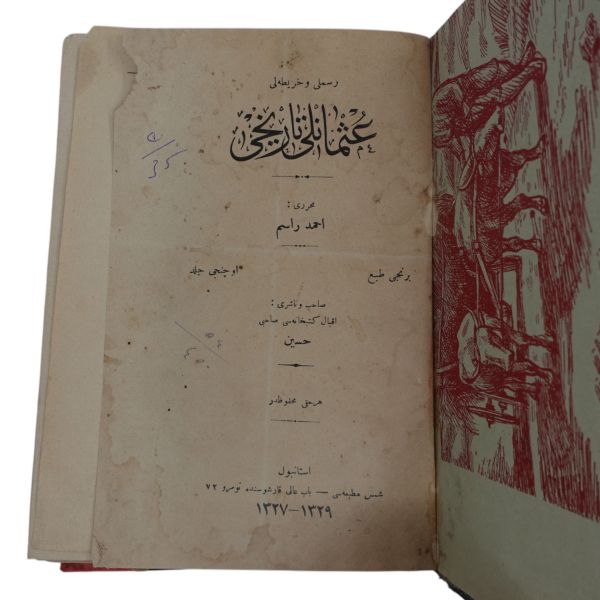 رسملی و خریطه‌لی
عثمانلی تاریخی
محرری :
احمد راسم
برنجی طبع
اوچنجی جلد
صاحب و ناشری :
اقبال کتبخانه‌سی صاحبی
حسین
هر حقی محفوظدر
استانبول
شمس مطبعه‌سی — باب عالی قارشوسنده نومرو ٧٢
١٣٢٧–١٣٢٩